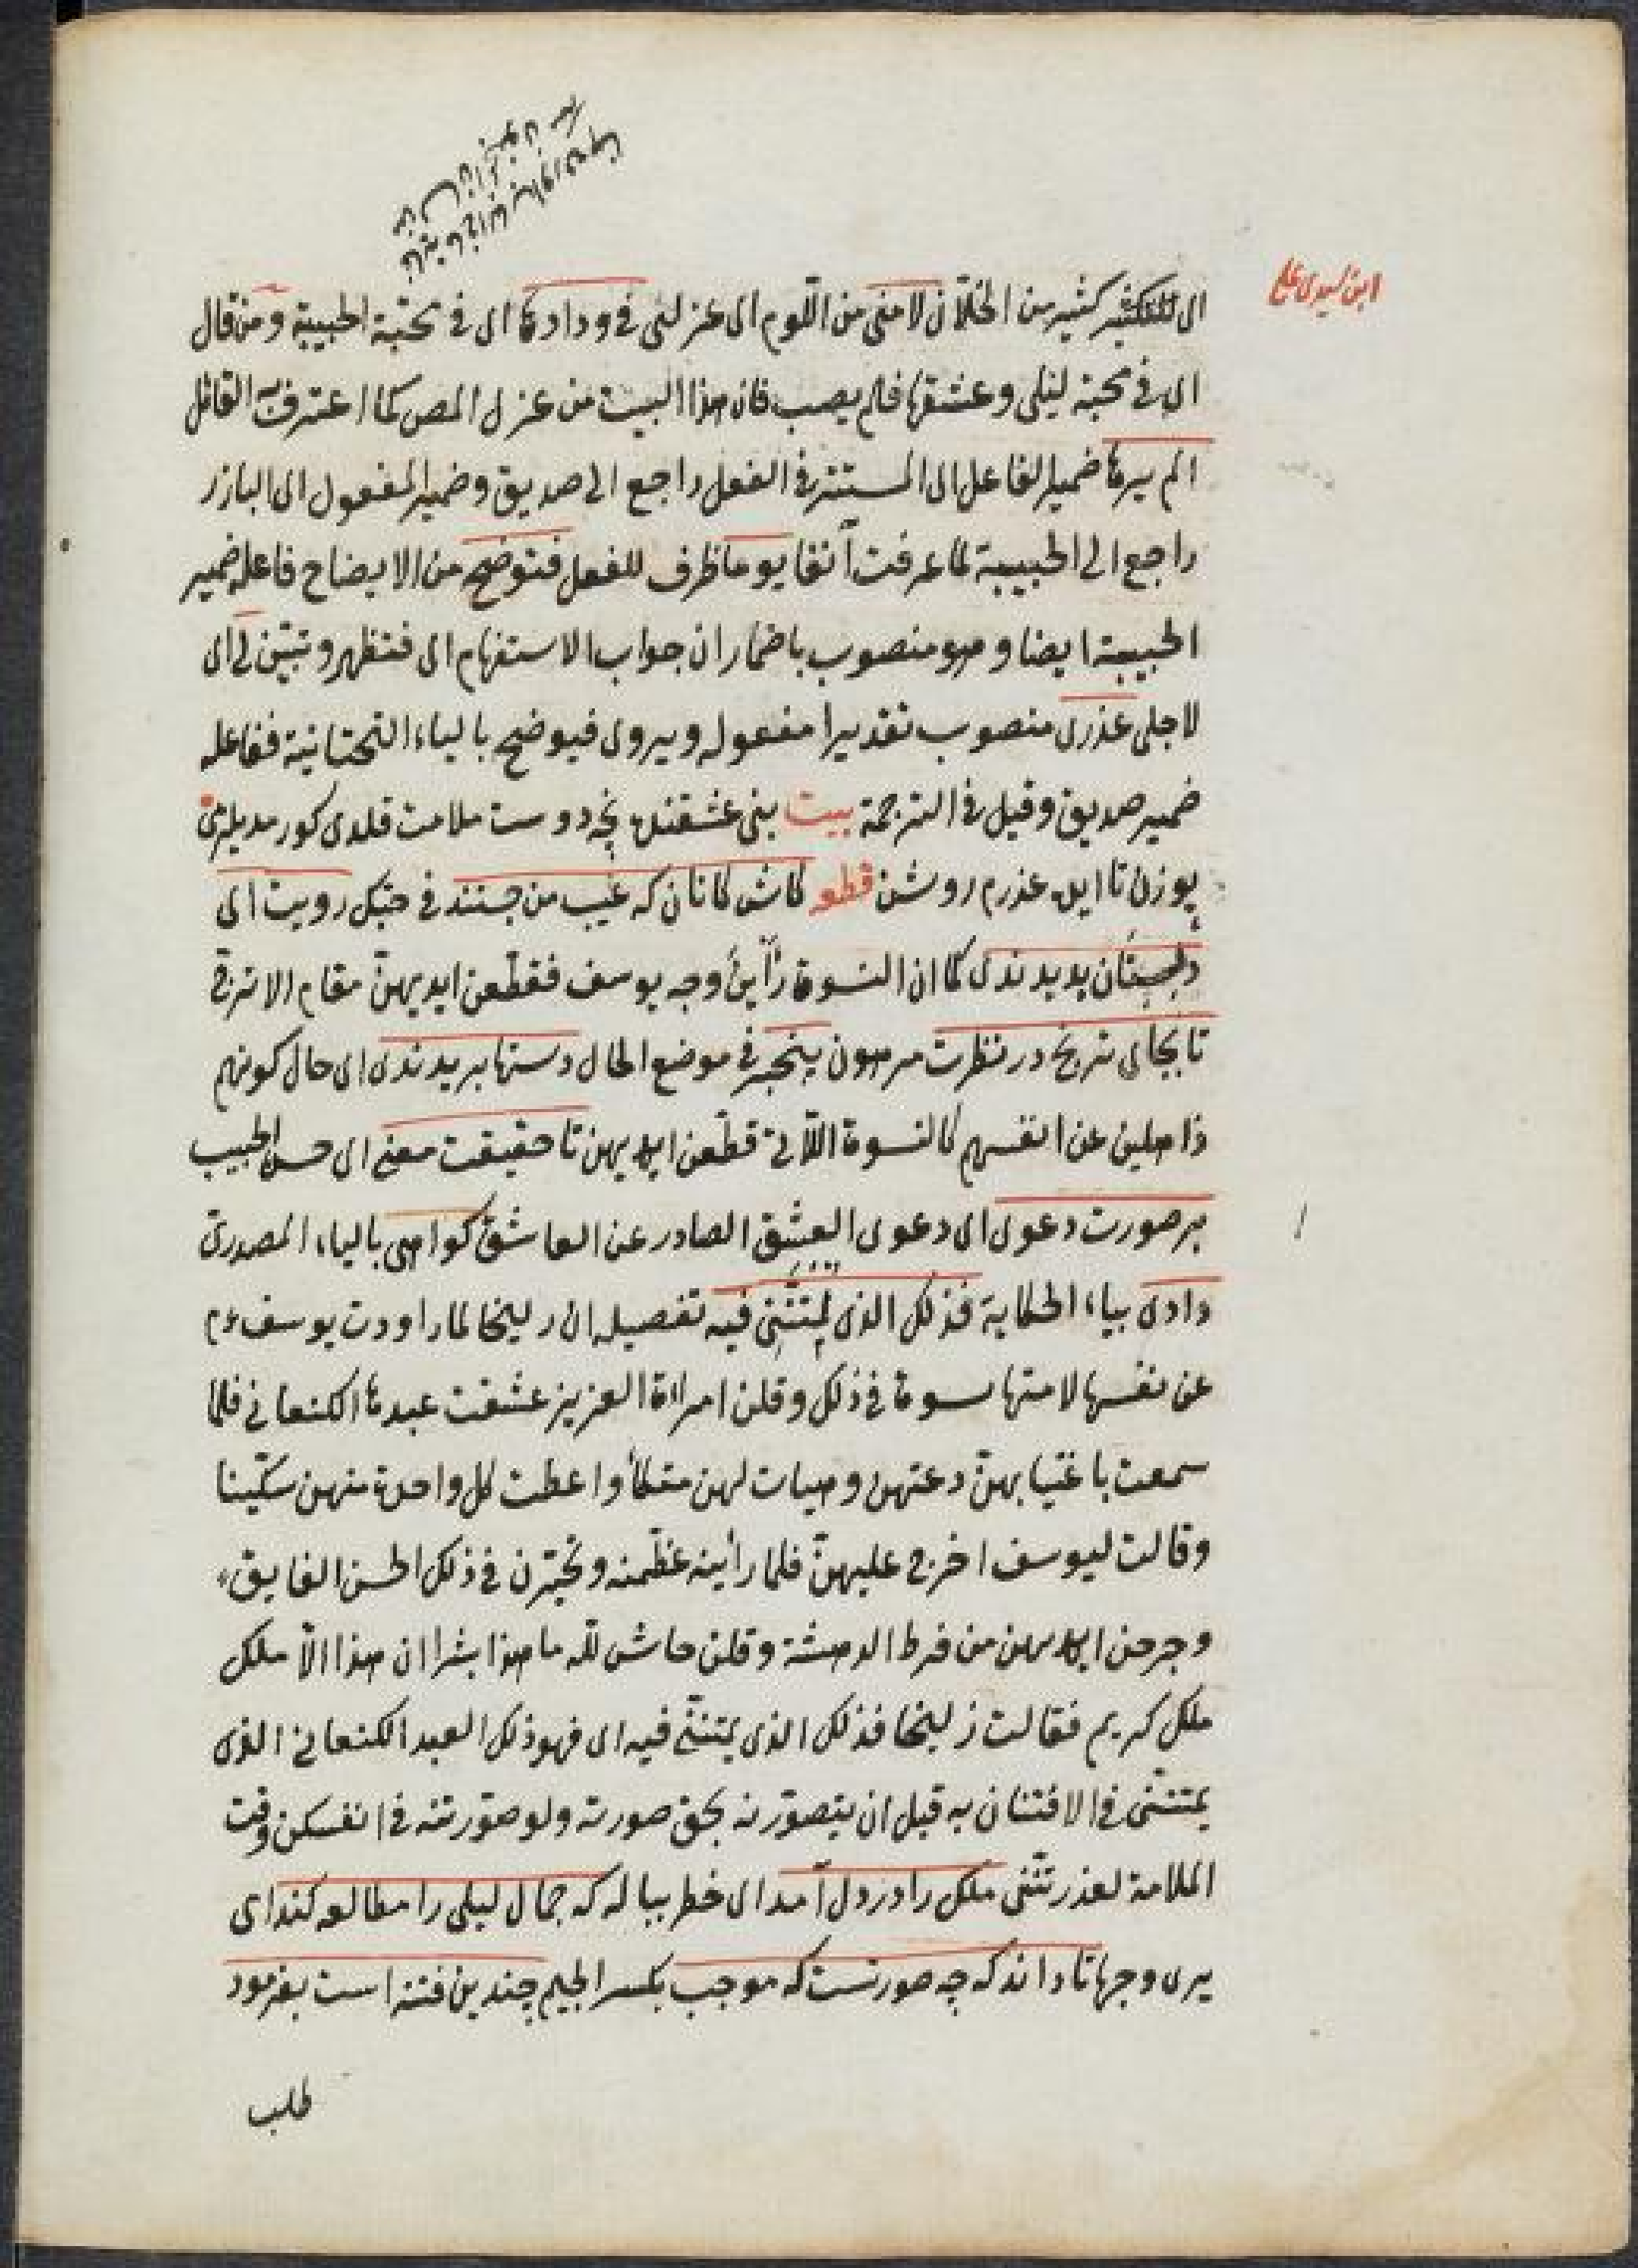 ابن سيدى على
اى للتكثير كثير من الخلّان لامنى من اللّوم اى عزلنى فى ودادها اى فى محبّة الحبيبة ومن قال
اى فى محبة ليلى وعشقها فلم يصب فان هذا البيت من غزل المص كما اعترف به القائل
الم يرها ضمير الفاعل اى المستتر فى الفعل راجع الى صديق وضمير المفعول اى البارز
راجع الى الحبيبة لما عرفت آنفا يوما ظرف للفعل فتوضح من الايضاح فاعله ضمير
الحبيبة ايضا وهو منصوب باضمار ان جواب الاستفهام اى فتظهر وتبيّن لى اى
لاجلى عذرى منصوب تقديرا مفعوله ويروى فيوضح بالياء التحتانية ففاعله
ضمير صديق وقيل فى الترجمة بيت بنى عشقنده نچه دوست ملامت قلدى كورمديلرمى
يوزن تا ايله عذرم روشن قطو كاش كانان كه عيب من جستند فى حبّك رويت اى
دلستان بديدندى كما ان النسوة رأين وجه يوسف فقطّعن ايديهنّ مقام الاترج
تا بجاى ترنج در نظرت مرهون بيخبر فى موضع الحال دستها بريدندى اى حال كونهم
ذاهلين عن انفسهم كالنسوة اللّاتى قطّعن ايديهن تا حقيقت معنى اى حسن الحبيب
بر صورت دعوى اى دعوى العشق الصادر عن العاشق كواهى بالياء المصدرى
دادى بياء الحكاية فذلك الذى لمتننى فيه تفصيله ان زليخا لما راودت يوسف ءم
عن نفسها لامتها نسوة فى ذلك وقلن امراءة العزيز عشقت عبدها الكنعانى فلما
سمعت باغتيابهنّ دعتهن وهيات لهن متكأ واعطت كل واحدة منهن سكّينا
وقالت ليوسف اخرج عليهنّ فلما رأينه عظّمنه وتحيّرن فى ذلك الحسن الفايق
وجرحن ايديهن من فرط الدهشة وقلن حاش لله ما هذا بشرا ان هذا الّا ملك
ملك كريم فقالت زليخا فذلك الذى لمتننى فيه اى فهو ذلك العبد الكنعانى الذى
لمتننى فى الافتتان به قبل ان يتصوّرنه بحق صورته ولو صوّرتنه فى انفسكن وقت
الملامة لعذرتننى ملك را در دل آمد اى خطر بباله كه جمال ليلى را مطالعه كند اى
يرى وجهها تا داند كه چه صورتست كه موجب بكسر الجيم چندين فتنه است بفرمود
طلب